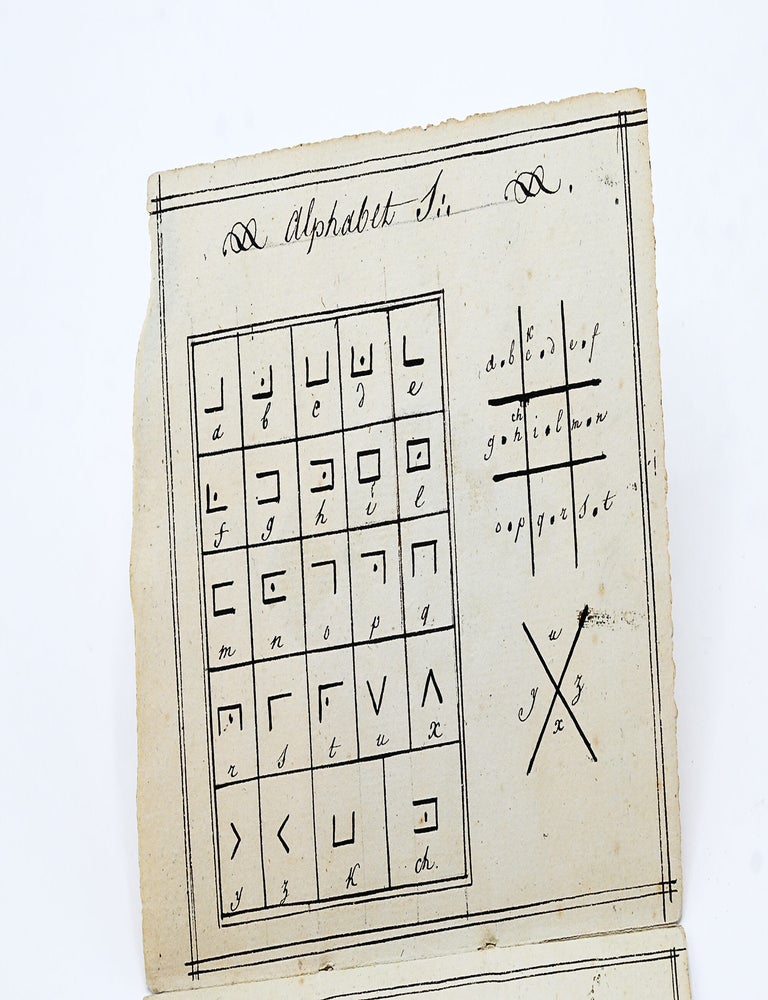 Alphabet S:.
a b c d e
f g h i l
m n o p q
r s t u x
y z k ch.
k
a.b c.d e.f
ch
g.h i.l m.n
o.p q.r s.t
u
y z
x